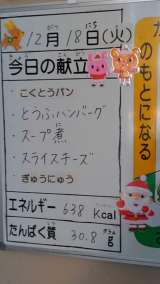 12月18日(火)
がつ にち
今日の献立
・こくとうパン
・とうふハンバーグ
・スープ煮
・スライスチーズ
・ぎゅうにゅう
エネルギー 638 Kcal
たんぱく質 30.8 g
のもとになる